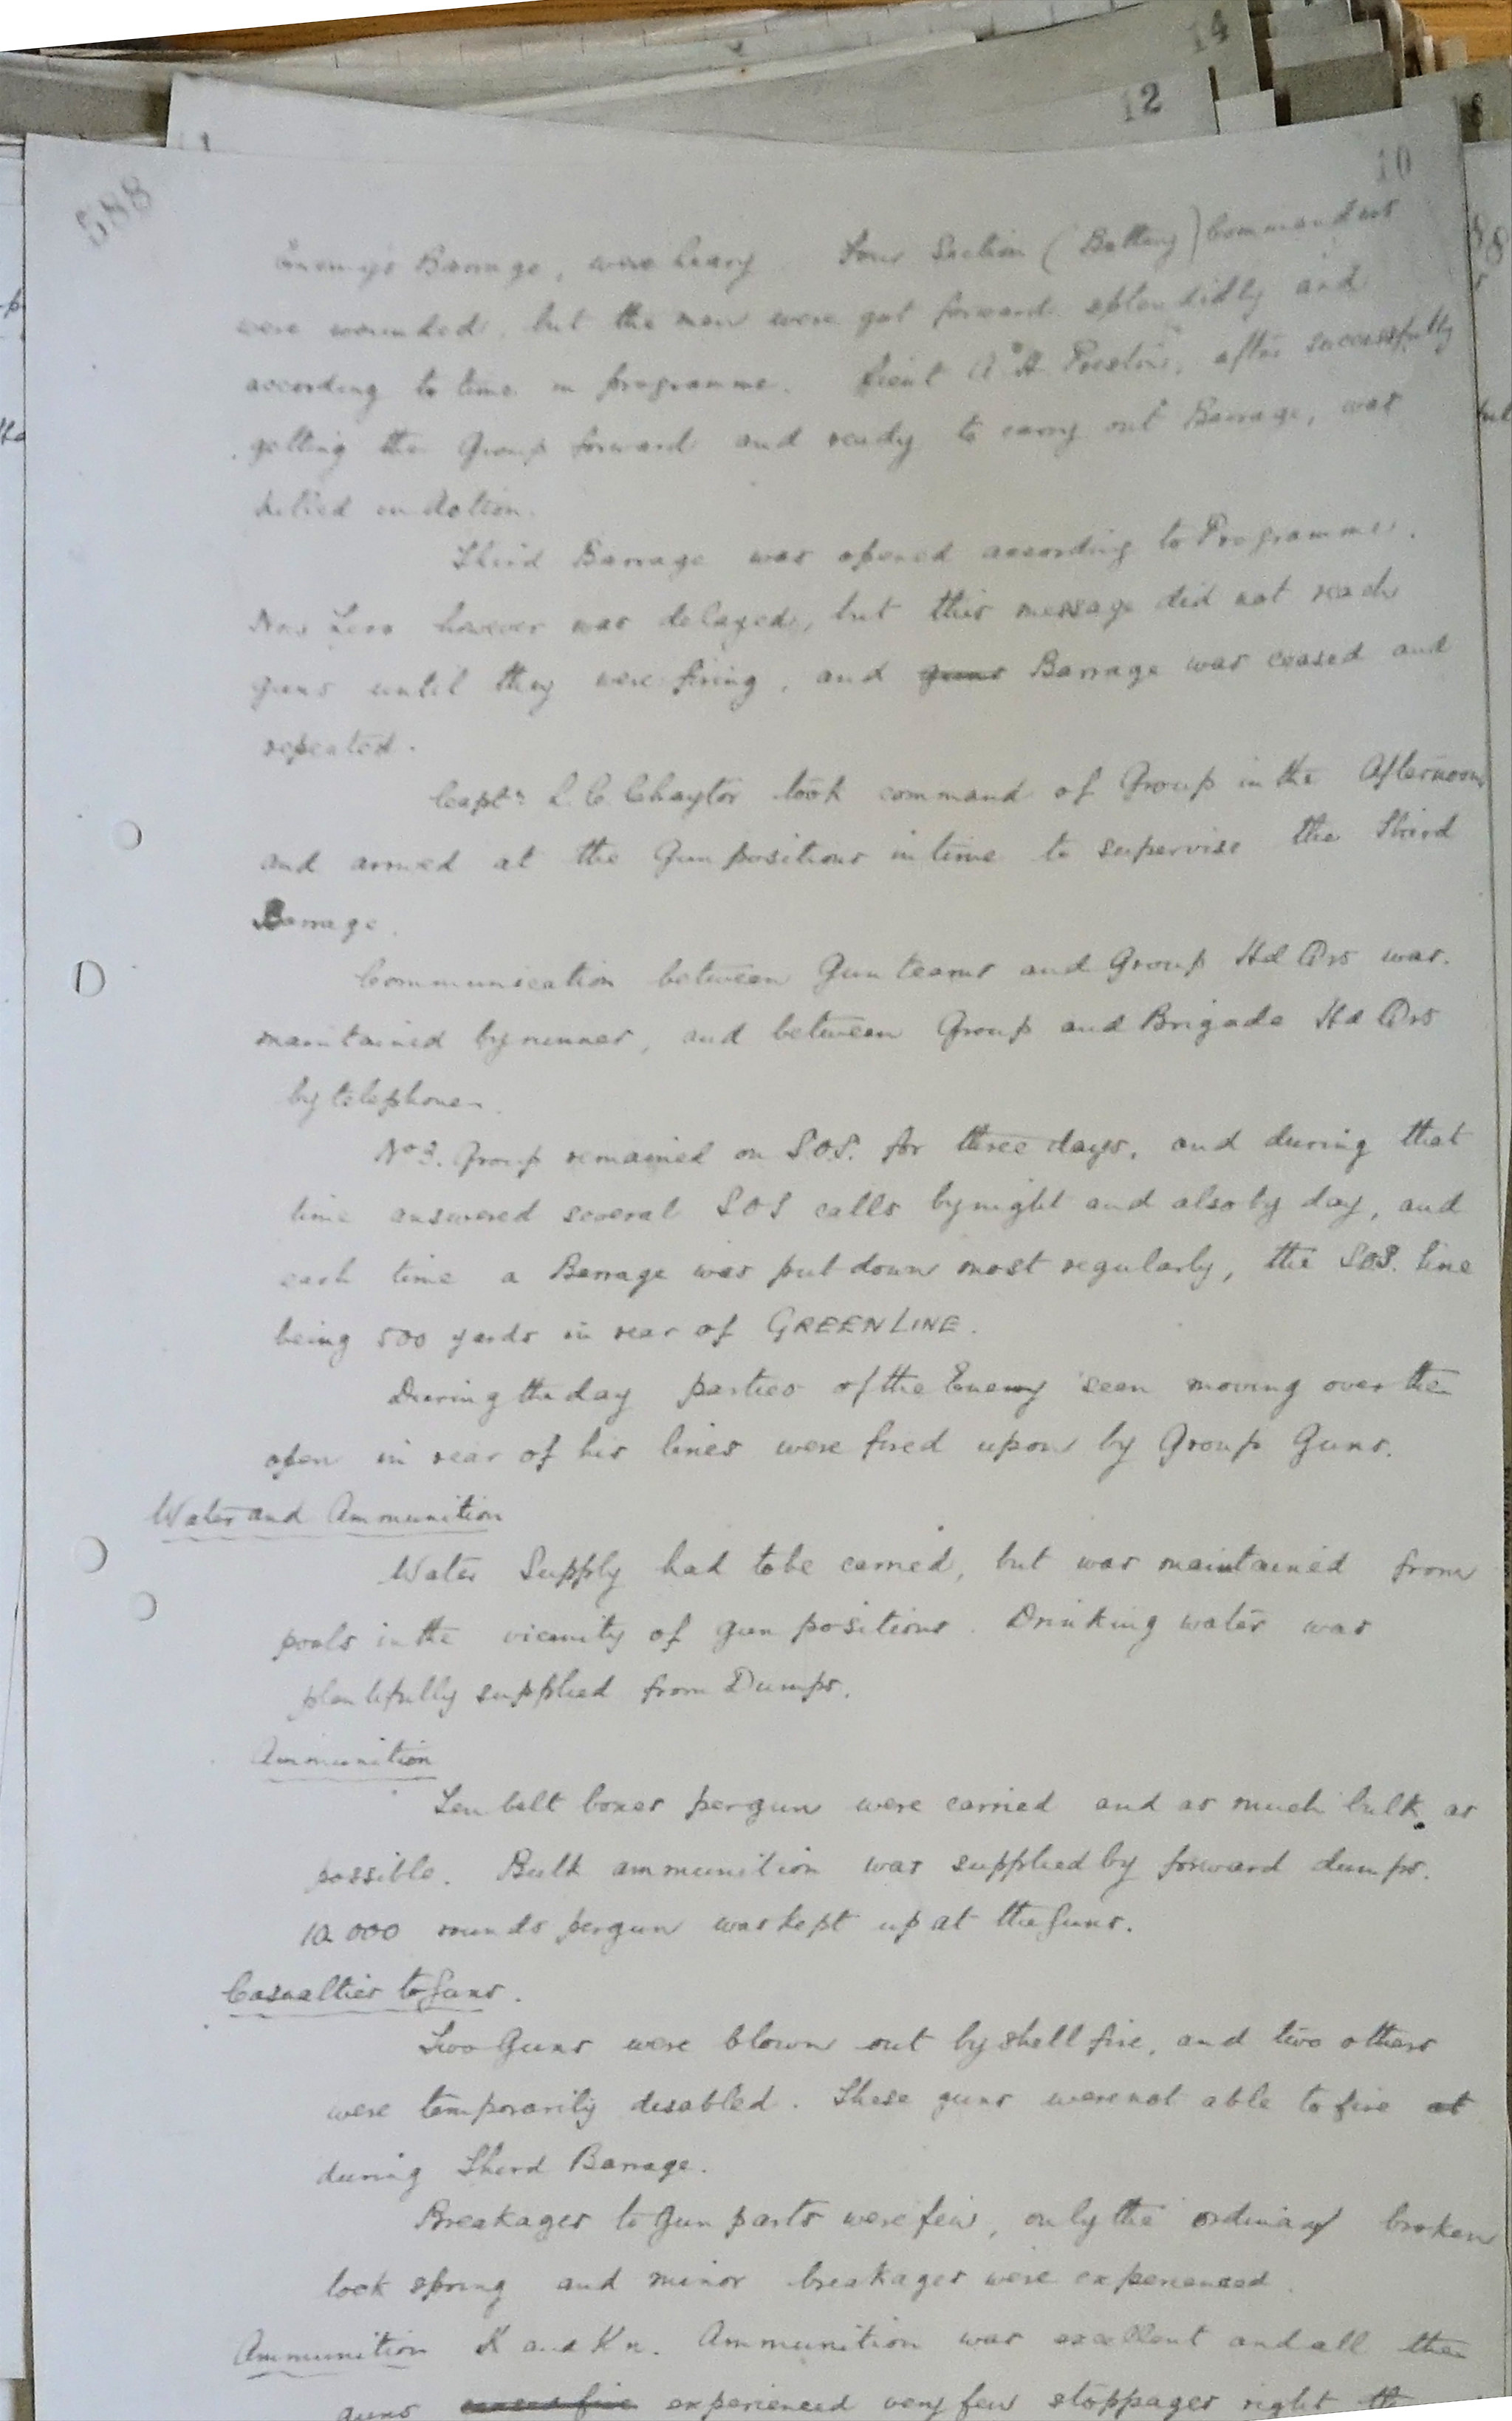 14
12
10
588
Enemy's Barrage, were heavy Four Section (Battery) Commanders
were wounded, but the men were got forward splendidly and
according to time in programme. Lieut A. H. Preston, after successfully
getting the Group forward and ready to carry out Barrage, was
killed in Action.
Third Barrage was opened according to Programme.
New Zero however was delayed, but this message did not reach
guns until they were firing, and guns Barrage was ceased and
repeated.
Captn L. C. Chaytor took command of Group in the Afternoon
and arrived at the Gun positions in time to supervise the Third
Barrage.
Communication between Gun teams and Group Hd Qrs was
maintained by runner, and between Group and Brigade Hd Qrs
by telephone.
No 3. Group remained on S.O.S. for three days, and during that
time answered several S O S calls by night and also by day, and
each time a Barrage was put down most regularly, the S.O.S. line
being 500 yards in rear of GREEN LINE.
During the day parties of the Enemy seen moving over the
open in rear of his lines were fired upon by Group Guns.
Water and Ammunition
Water Supply had to be carried, but was maintained from
pools in the vicinity of gun positions. Drinking water was
plentifully supplied from Dumps.
Ammunition
Ten belt boxes per gun were carried and as much bulk as
possible. Bulk ammunition was supplied by forward dumps.
10.000 rounds per gun was kept up at the Guns.
Casualties to Guns.
Two Guns were blown out by shell fire, and two others
were temporarily disabled. These guns were not able to fire at
during Third Barrage.
Breakages to Gun parts were few, only the ordinary broken
lock spring and minor breakages were experienced.
Ammunition K and Kn. Ammunition was excellent and all the
guns experienced very few stoppages right